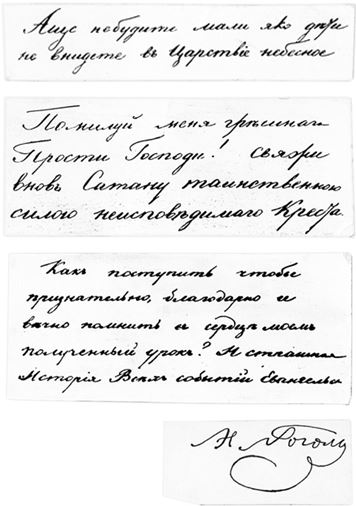 Аще не будите мали яко дѣти
не внидете въ Царствіе небесное
Помилуй меня грѣшнаго
Прости Господи! Свяжи
вновь Сатану таинственною
силою неисповѣдимаго Креста
Какъ поступить чтобы
признательно, благодарно и
вѣчно помнить въ сердцѣ моемъ
полученный урокъ? И страшная
Исторія Всѣхъ событій Евангельс
Н. Гоголь